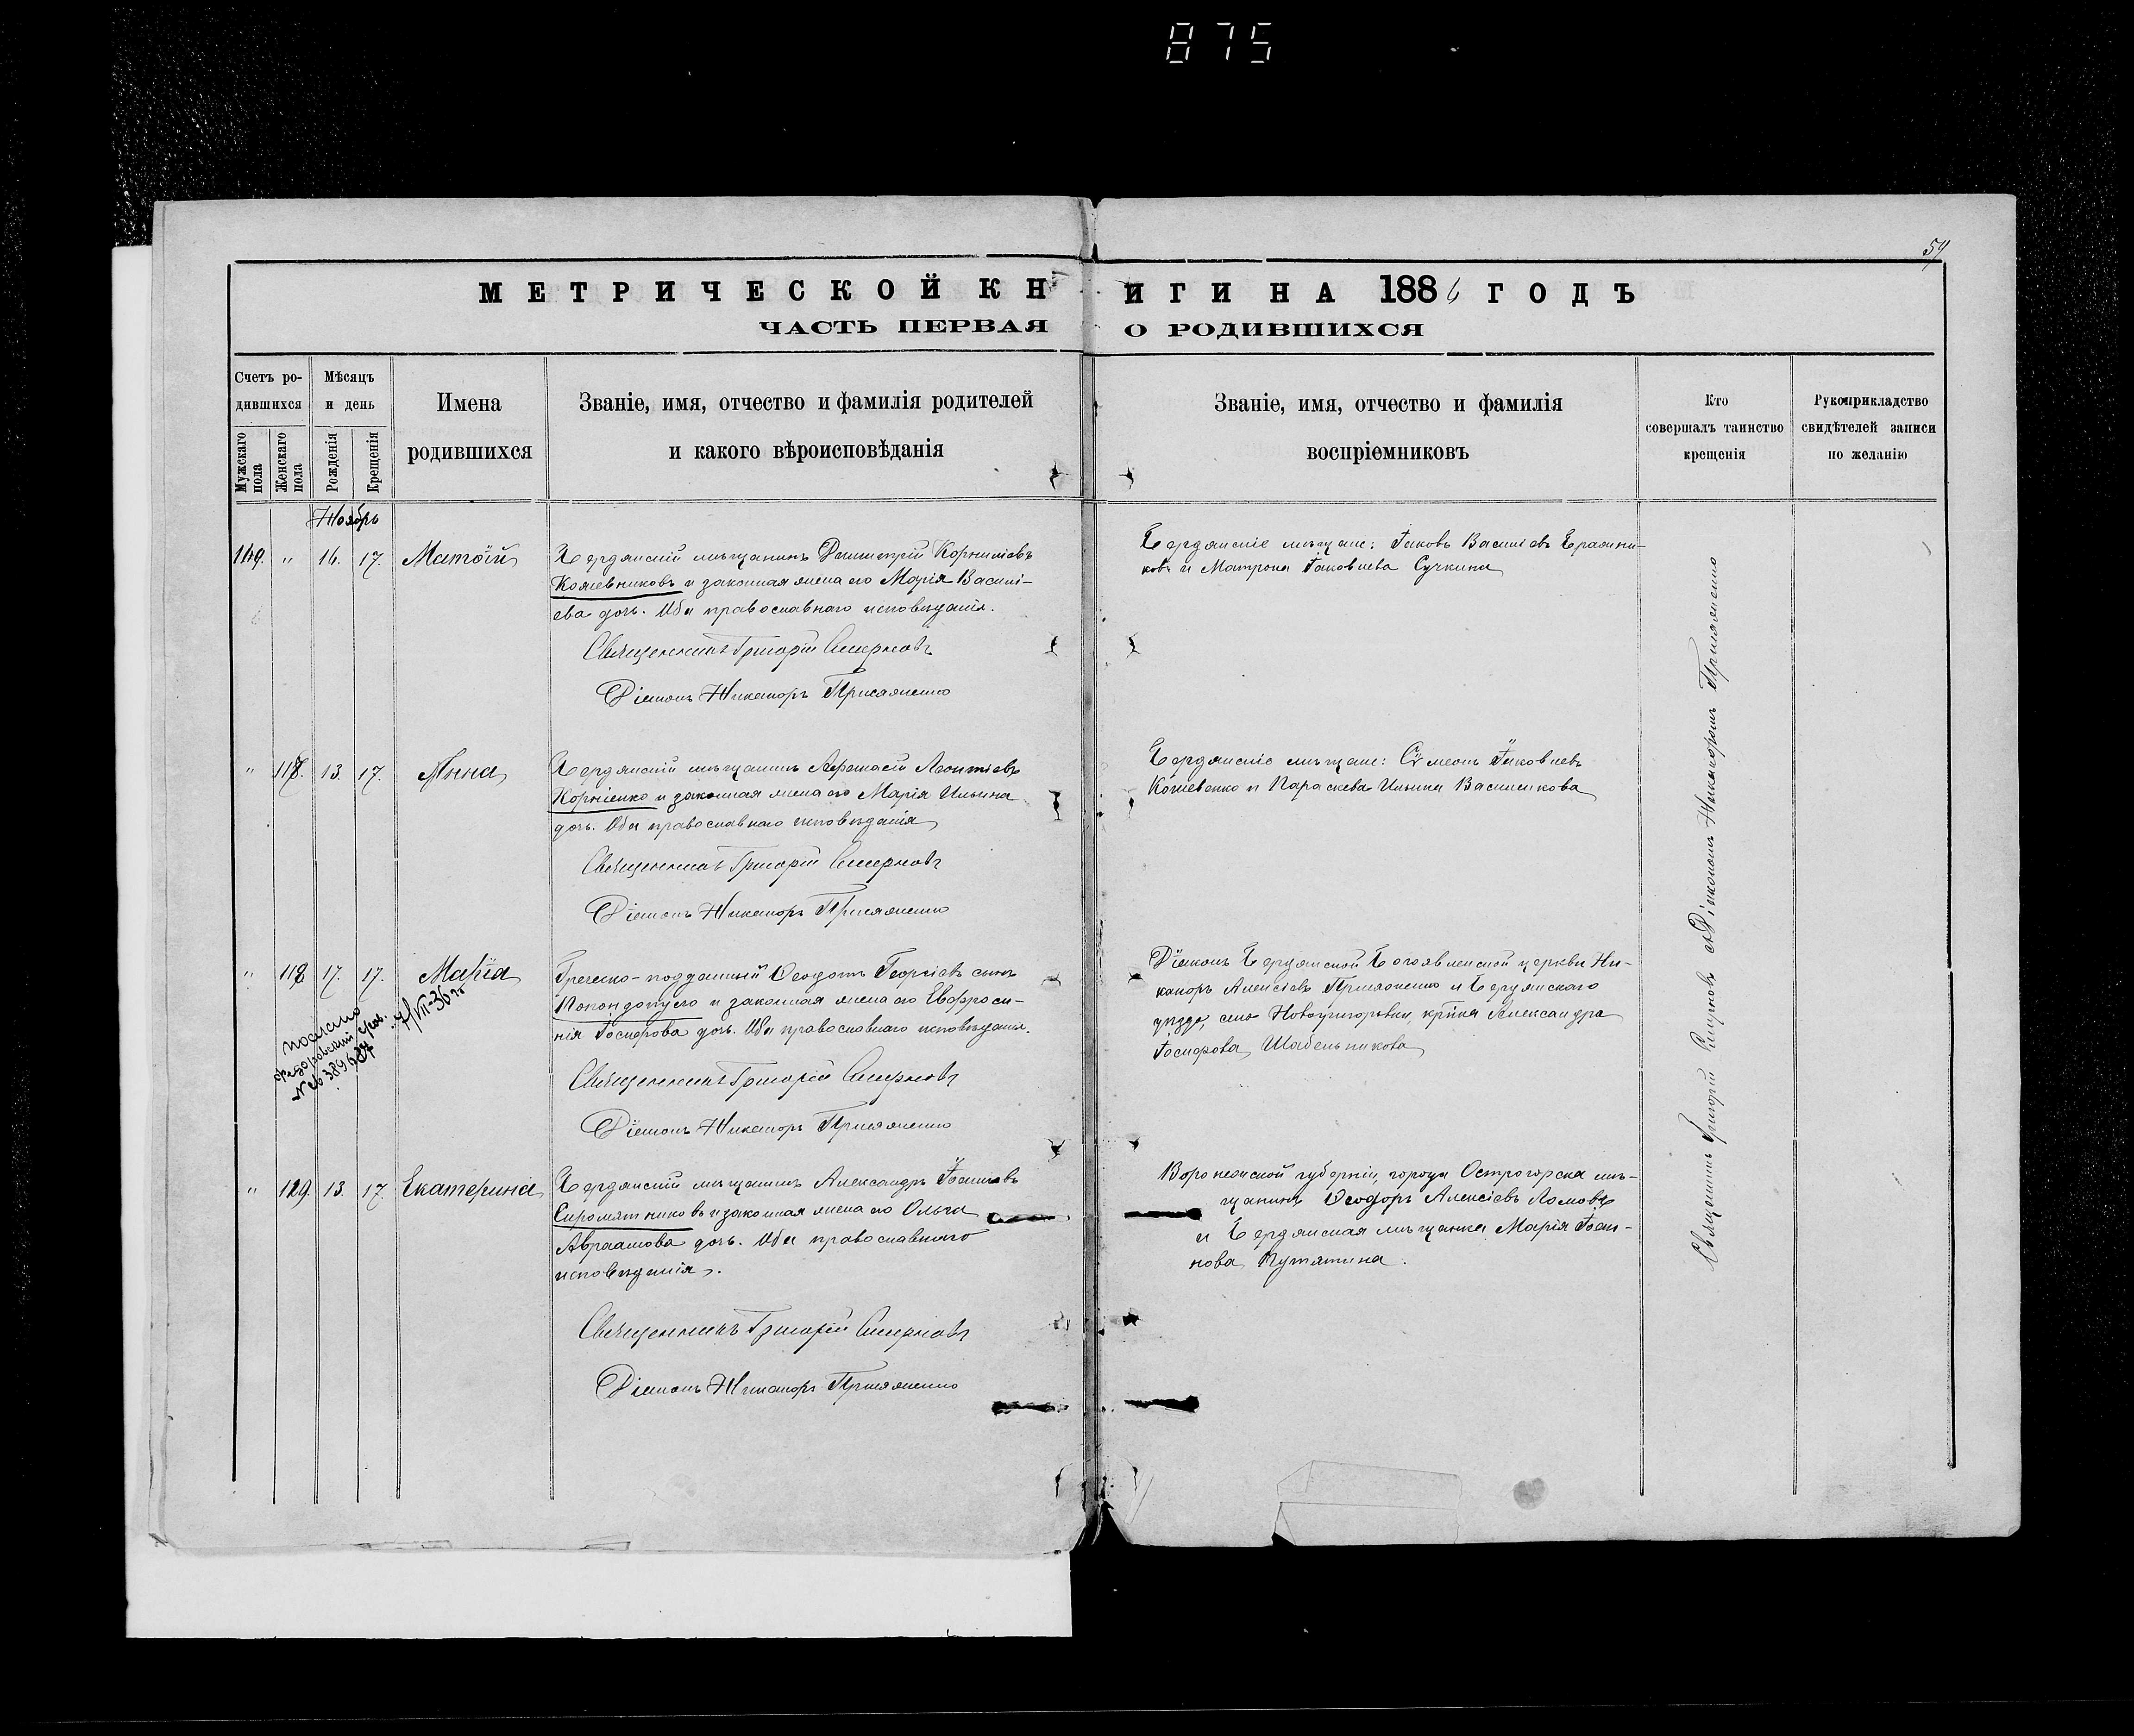 875
57
МЕТРИЧЕСКОЙ КНИГИ НА 1886 ГОДЪ
ЧАСТЬ ПЕРВАЯ О РОДИВШИХСЯ
Счетъ ро-
дившихся
Мужскаго пола
Женскаго пола
Мѣсяцъ
и день
Рожденія
Крещенія
Имена
родившихся
Званіе, имя, отчество и фамилія родителей
и какого вѣроисповѣданія
Званіе, имя, отчество и фамилія
воспріемниковъ
Кто
совершалъ таинство
крещенія
Рукоприкладство
свидѣтелей записи
по желанію
Ноябрь
" 16. 17. Матѳій
Бердянскій мѣщанинъ Димитрій Корниліевъ
Кожевниковъ и законная жена его Марія Василі-
ева дочь. Оба православнаго исповѣданія.
Священникъ Григорій Смирновъ
Діаконъ Никаноръ Присяженко
Бердянскіе мѣщане: Іаковъ Василіевъ
ковъ и Матрона Іаковлева Сучкина
" 117. 13. 17. Анна
Бердянскій мѣщанинъ Аѳанасій Леонтіевъ
Корніенко и законная жена его Марія Ильина
дочь. Оба православнаго исповѣданія
Священникъ Григорій Смирновъ
Діаконъ Никаноръ Присяженко
Бердянскіе мѣщане: Сѵмеонъ Іаковлевъ
и Параскева Ильина Василенкова
" 118 17. 17. Марія
Греческо-подданный Ѳеодотъ Георгіевъ сынъ
и законная жена его Евфроси-
нія Іосифова дочь. Оба православнаго исповѣданія.
Священникъ Григорій Смирновъ
Діаконъ Никаноръ Присяженко
Діаконъ Бердянской Богоявленской церкви Ни-
каноръ Алексіевъ Присяженко и Бердянскаго
уѣзда, села Новогригорьевки, кр̃нка Александра
Іосифова Шабельникова
послано
" 119 13. 17. Екатерина
Бердянскій мѣщанинъ Александръ Іоанновъ
Сыромятниковъ и законная жена его Ольга
Авраамова дочь. Оба православнаго
исповѣданія.
Священникъ Григорій Смирновъ
Діаконъ Никаноръ Присяженко
Воронежской губерніи, города Острогорска мѣ-
щанинъ Ѳеодоръ Алексіевъ Ломовъ
и Бердянская мѣщанка Марія Іоан-
нова Путятина.
Священникъ Григорій Смирновъ съ Діакономъ Никаноромъ Присяженко